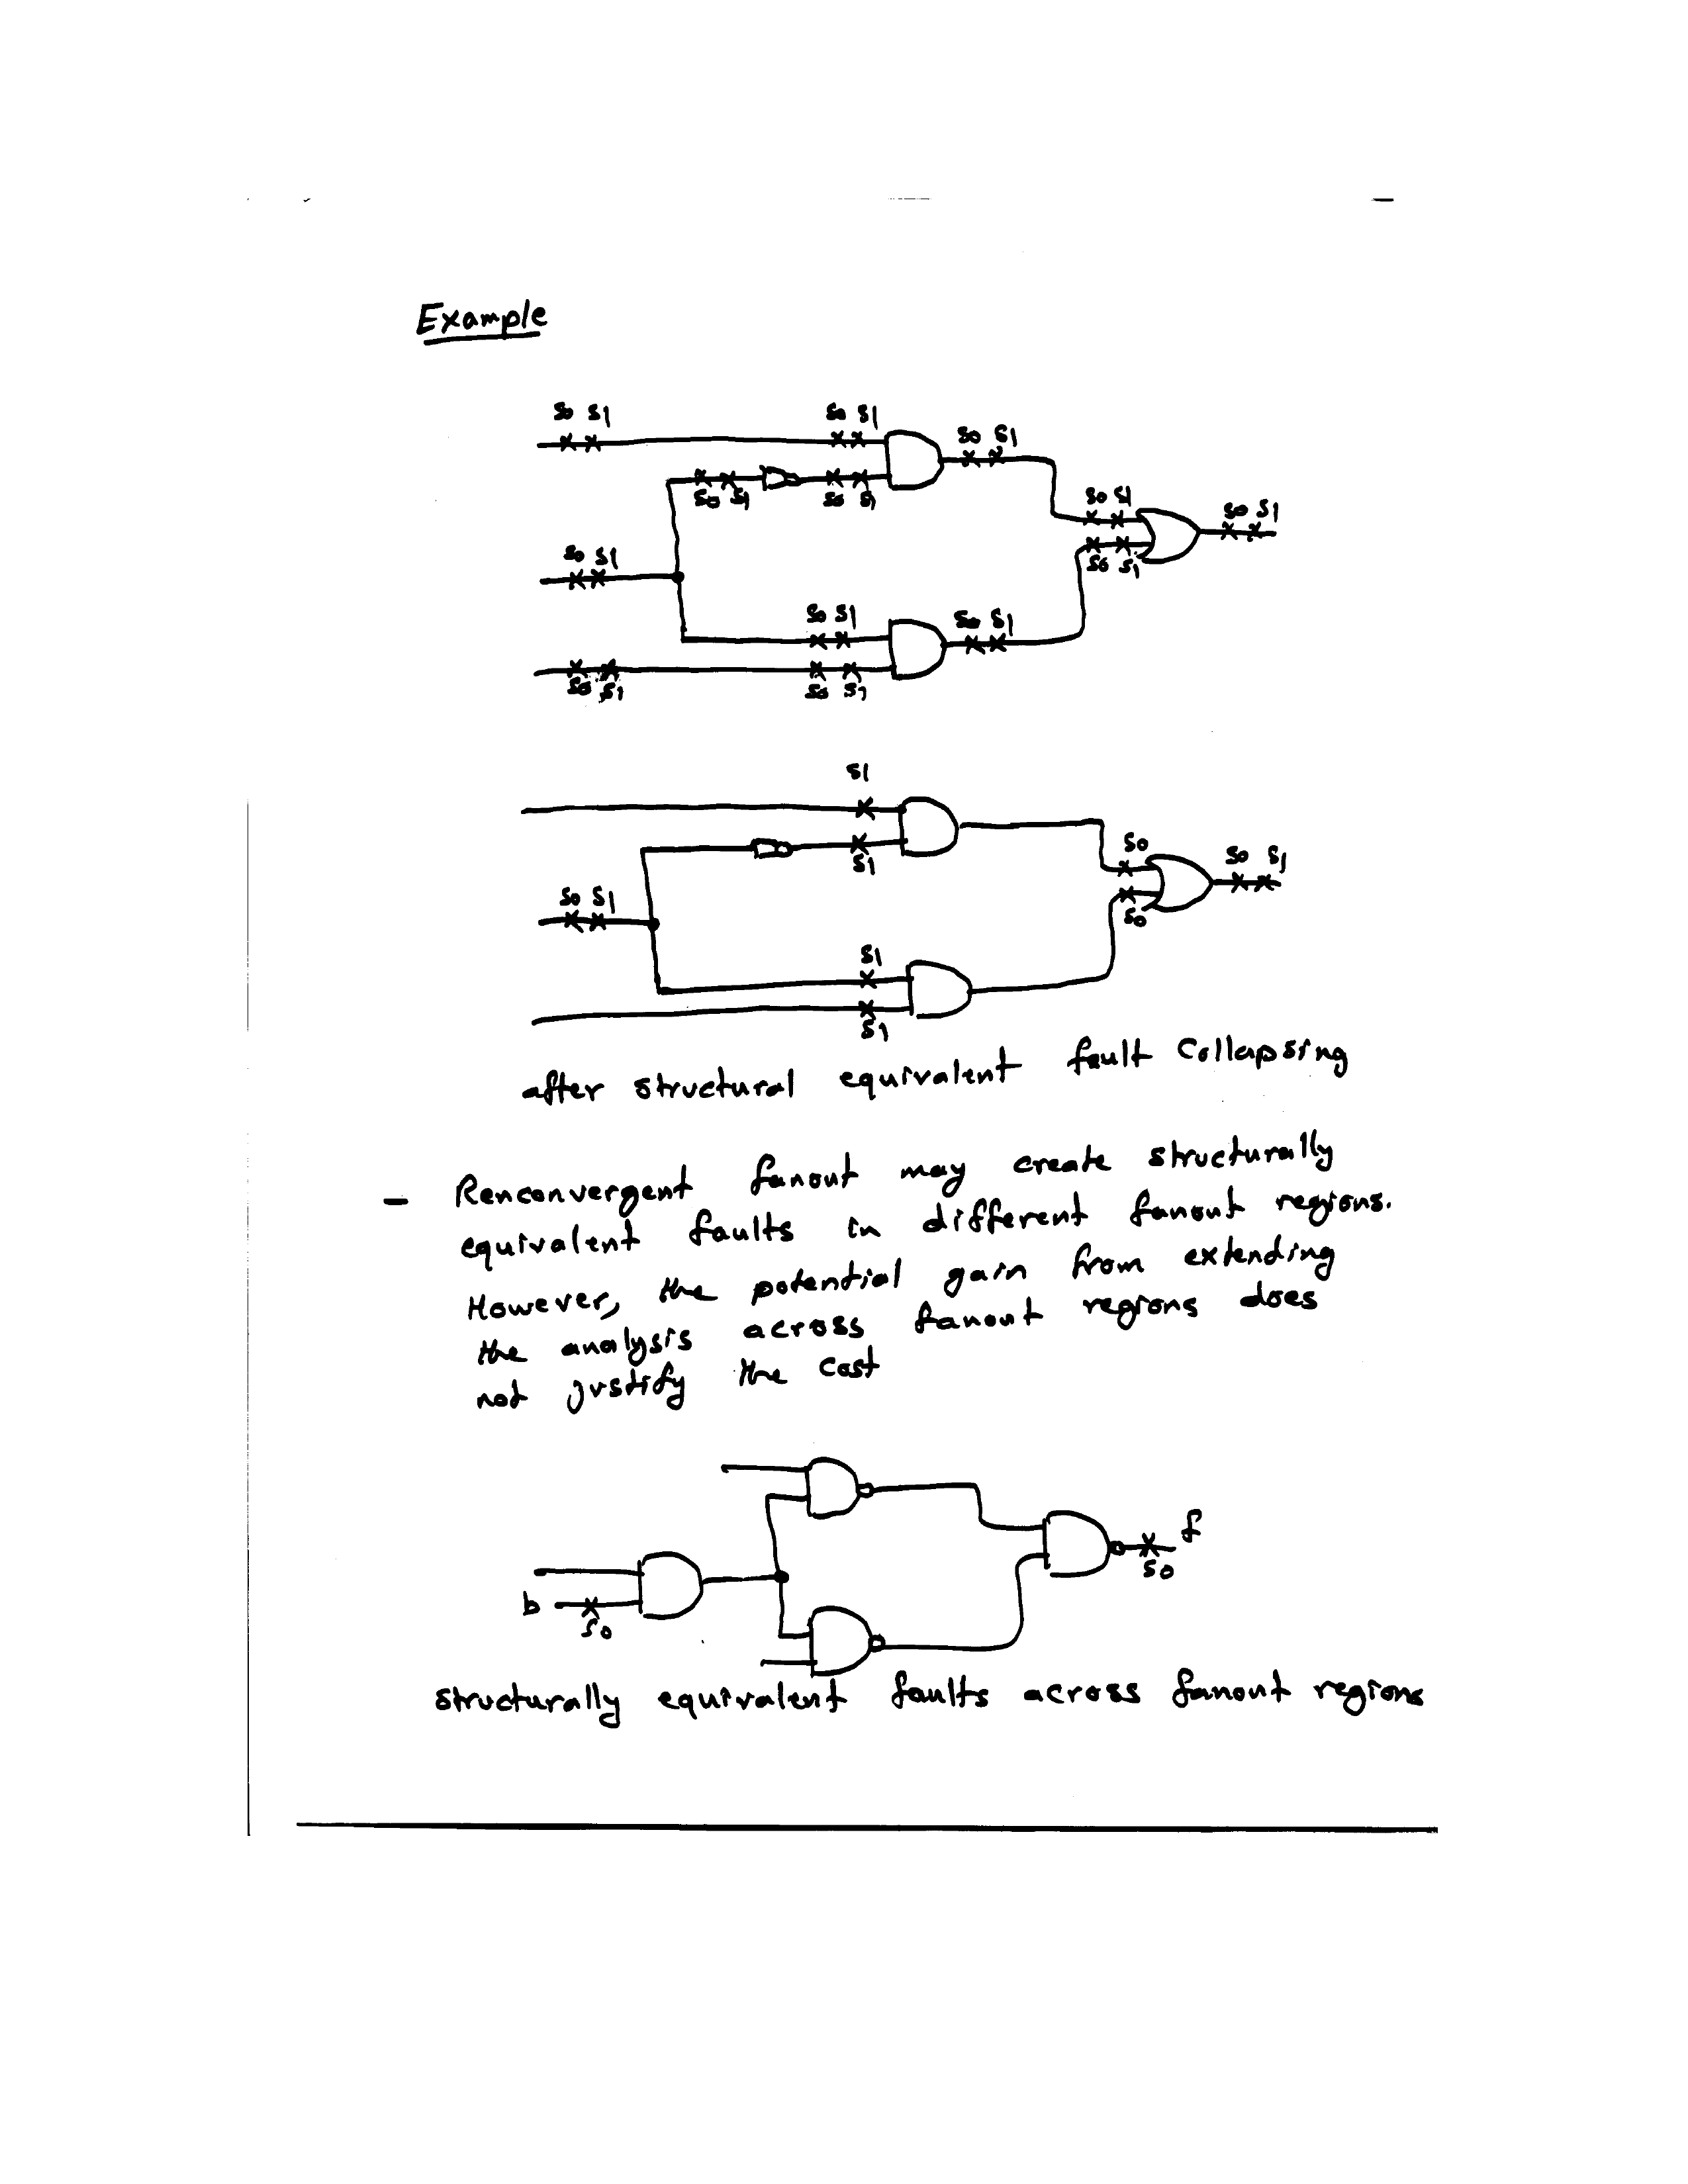 Example
s0 s1 s0 s1 s0 s1
s0 s1 s0 s1 s0 s1 s0 s1
s0 s1 s0 s1
s0 s1 s0 s1
s0 s1 s0 s1
s1
s1 s0 s0 s1
s0 s1 s0
s1
s1
after structural equivalent fault Collapsing
- Renconvergent fanout may create structurally
equivalent faults in different fanout regions.
However, the potential gain from extending
the analysis across fanout regions does
not justify the cost
f
s0
b
s0
structurally equivalent faults across fanout regions